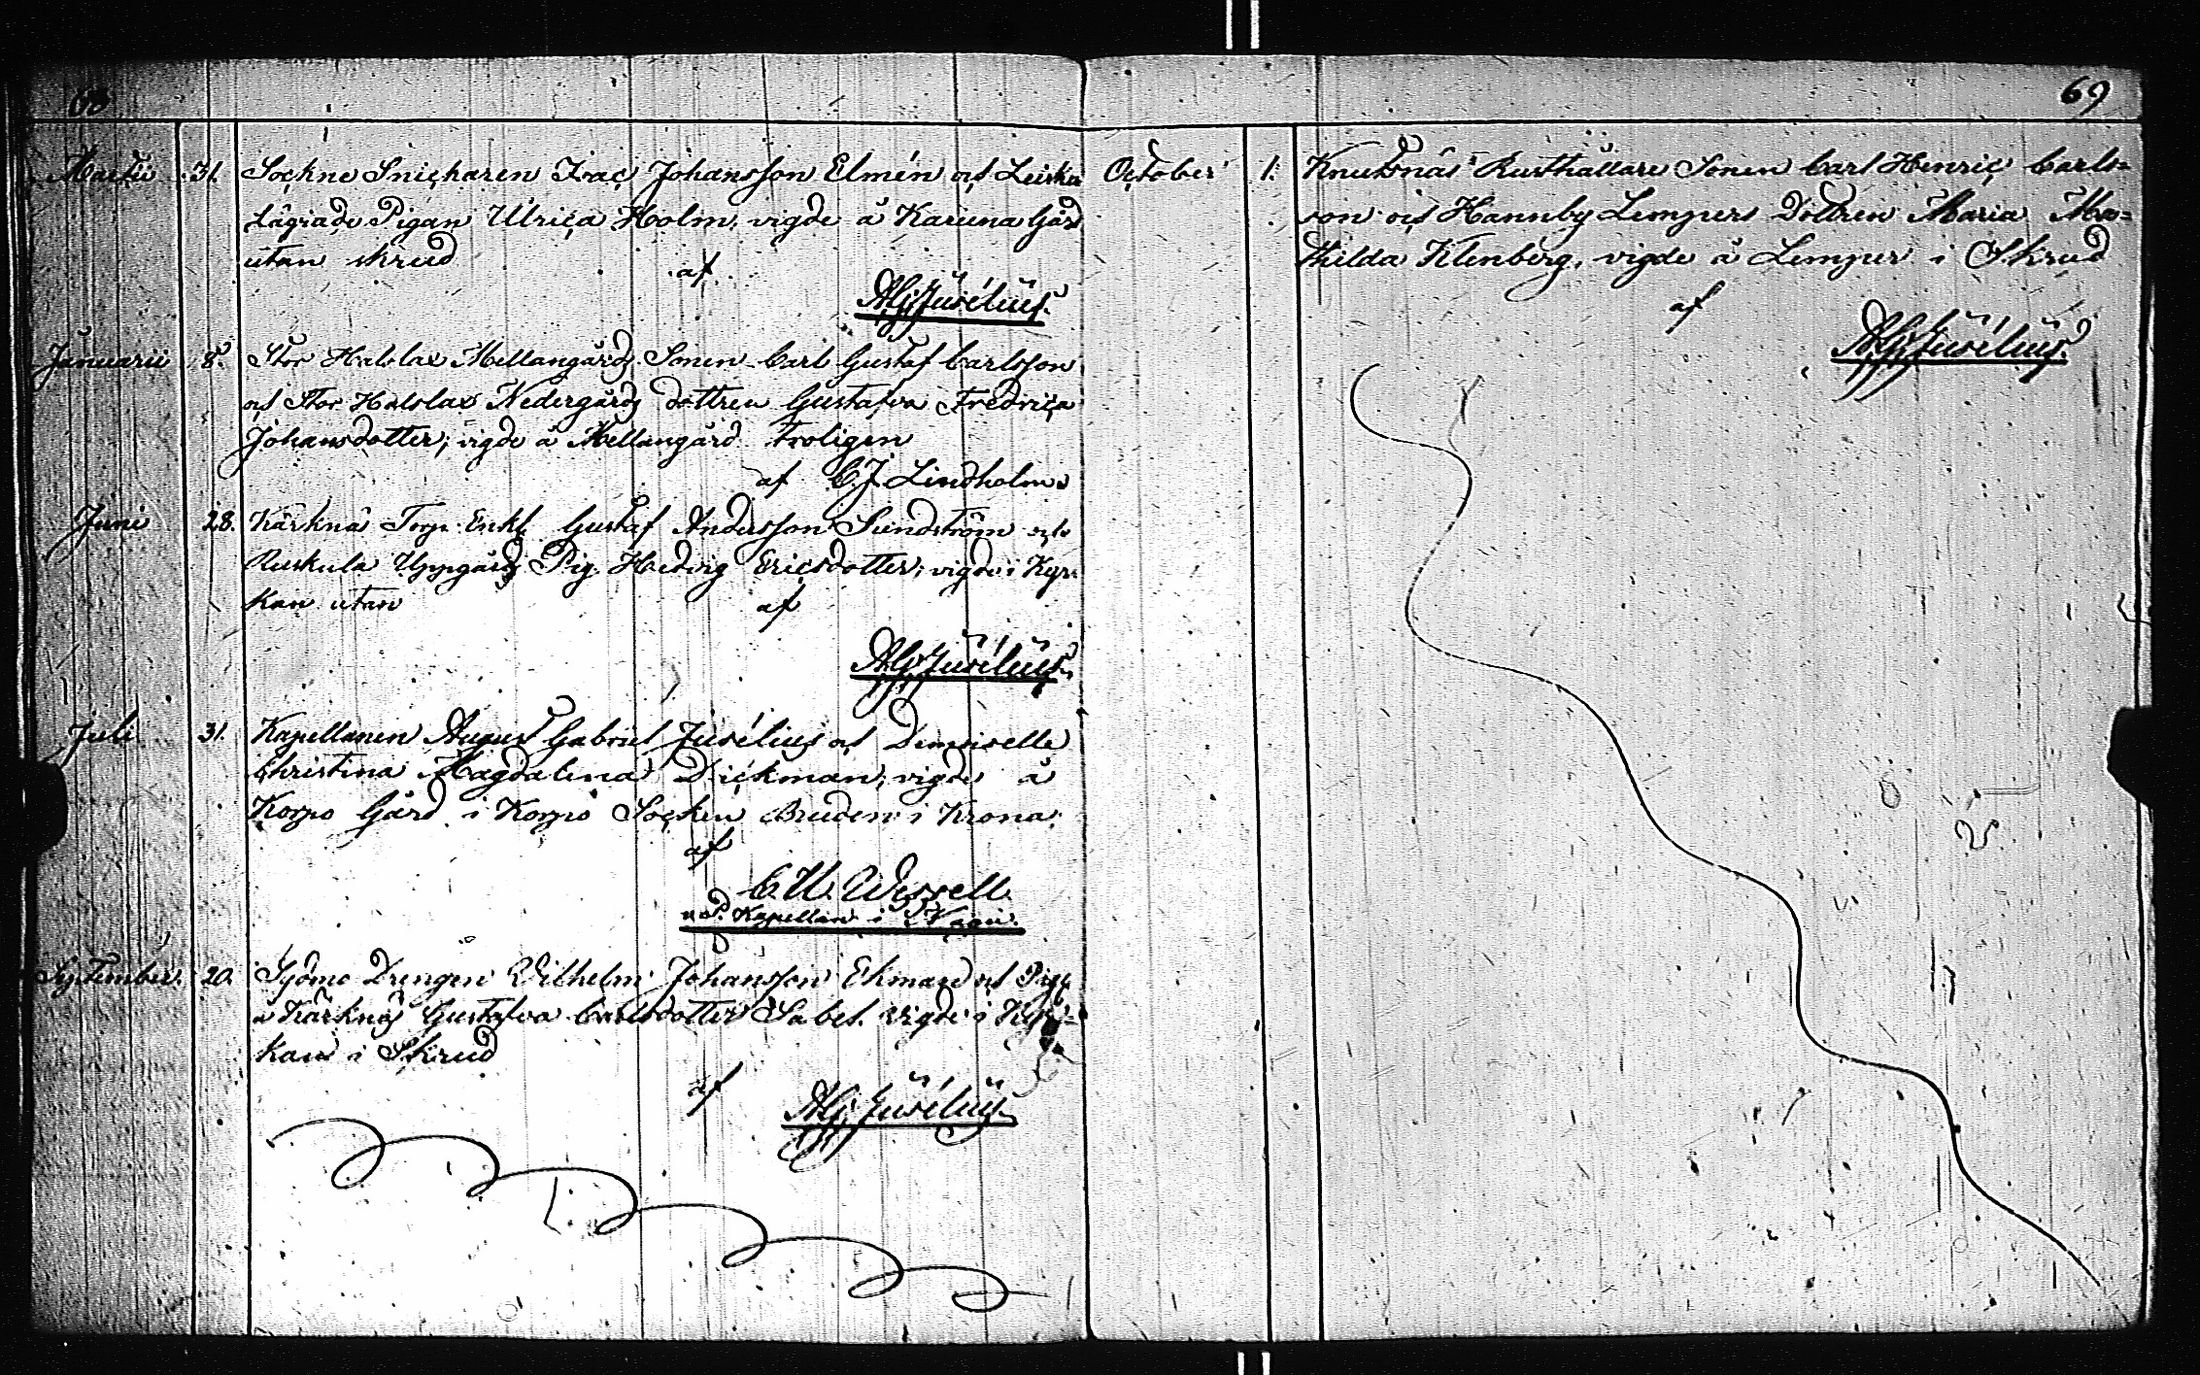 68
Martii 31. Sockne Snickaren Isac Johansson Elmén och Leiska
Lägrade Pigan Ulrica Holm, vigde å Karuna Gård
utan skrud
af
AG Jusélius.
Januarii 8. Stor Halslax Mellangårds Sonen Carl Gustaf Carlsson
och Stor Halslax Nedergårds dottren Gustafva Fredrica
Johansdotter; vigde å Mellangård Troligen
af C. J. Lindholm
Juni 28. Kärknäs Torp. Enkl. Gustaf Andersson Sundström och
Ruskula Uppgårds Pig. Hedvig Ericsdotter; vigde i Kyr-
kan utan
af
AG Jusélius.
Juli 31. Kapellanen August Gabriel Jusélius och Demoiselle
Christina Magdalena Dickman, vigde å
Korpo Gård i Korpo Socken Bruden i Krona,
af
C. U. Wessell
v. P. Kapellan i Nagu.
September 20. Sydmo Drengen Vilhelm Johansson Ekman och Pig.
å Kärknäs Gustafva Carlsdotter Sabel. vigde i Kyr-
kan i Skrud
af
AG Jusélius.
69
October 1. Knutsnäs Rusthållare Sonen Carl Henric Carls-
son och Hannby Lempers Dottren Maria Ma-
thilda Klenberg, vigde å Lemper i Skrud
af
AG Jusélius.